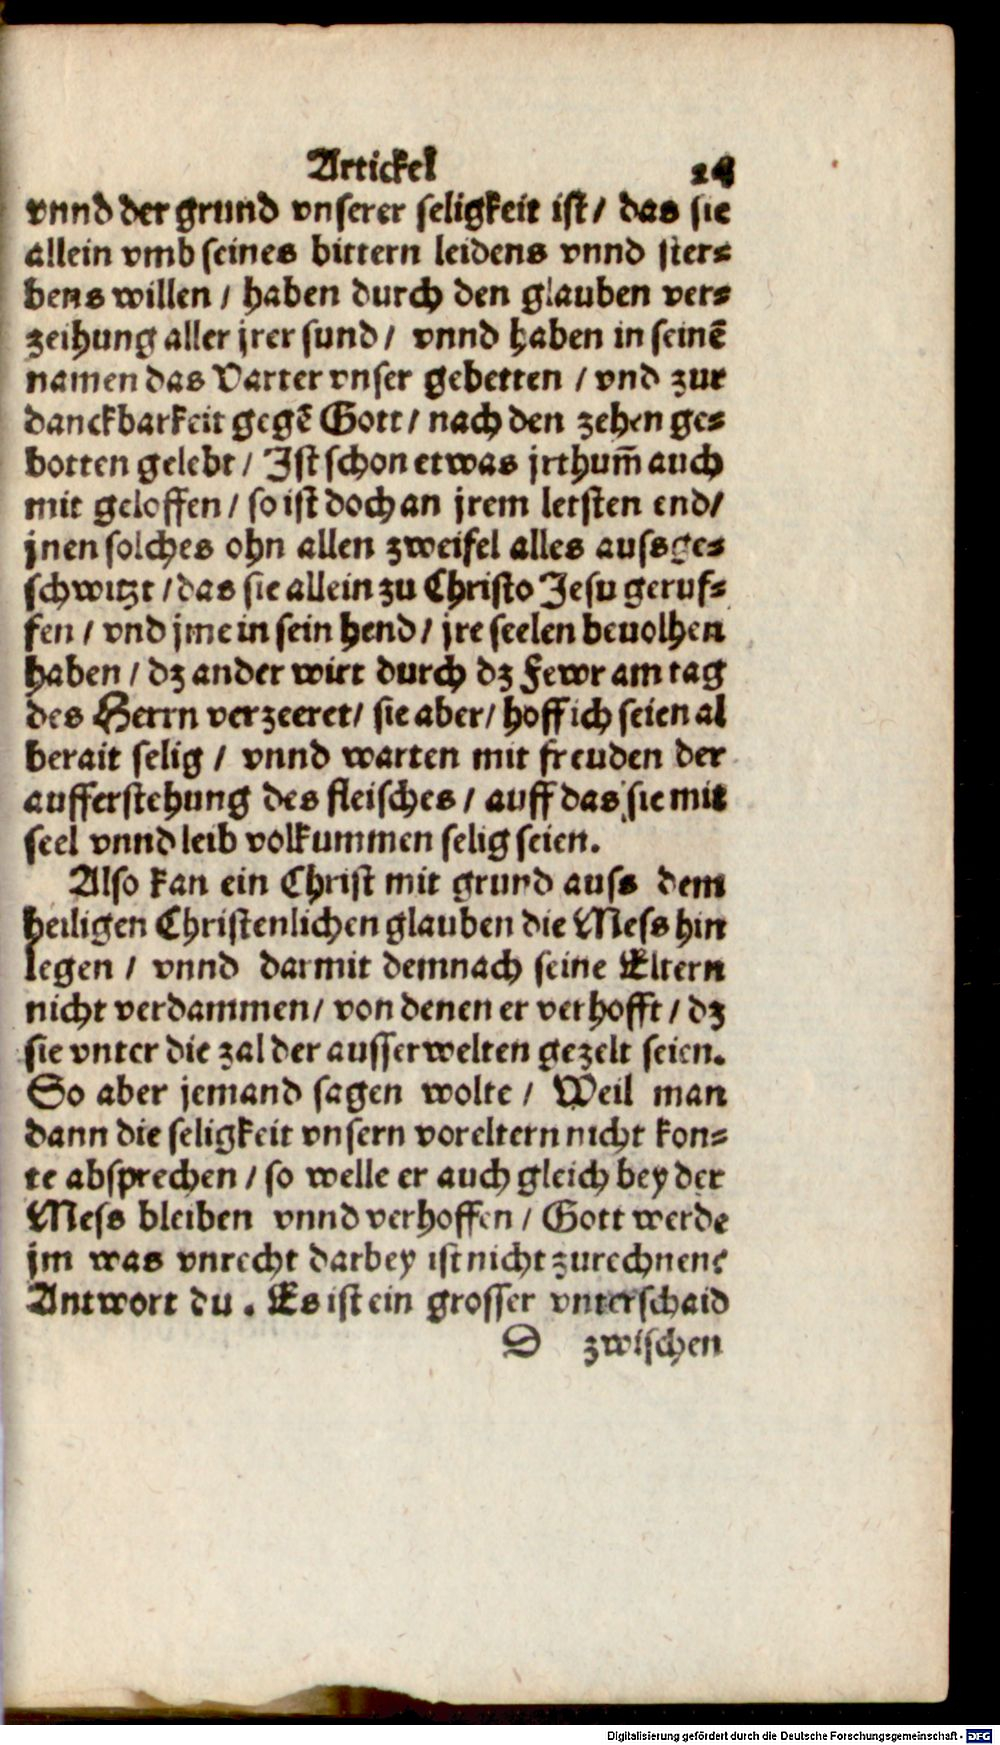 Artickel
vnnd der grund vnserer seligkeit ist/ das sie
allein vmb seines bittern leidens vnnd ster⸗
bens willen / haben durch den glauben ver⸗
zeihung aller jrer sund/ vnnd haben in seinē
namen das Vatter vnser gebetten / vnd zur
danckbarkeit gegē Gott/ nach den zehen ge⸗
botten gelebt / Ist schon etwas jrthum̄ auch
mit geloffen / so ist doch an jrem letsten end/
jnen solches ohn allen zweifel alles aussge⸗
schwitzt / das sie allein zu Christo Jesu geruf⸗
fen / vnd jme in sein hend/ jre seelen beuolhen
haben / dz ander wirt durch dz Fewr am tag
des Herrn verzeeret/ sie aber/ hoff ich seien al
berait selig / vnnd warten mit freuden der
aufferstehung des fleisches / auff das sie mit
seel vnnd leib volkummen selig seien.
Also kan ein Christ mit grund auss dem
heiligen Christenlichen glauben die Mess hin
legen / vnnd darmit demnach seine Eltern
nicht verdammen/ von denen er verhofft / dz
sie vnter die zal der ausserwelten gezelt seien.
So aber jemand sagen wolte / Weil man
dann die seligkeit vnsern voreltern nicht kon⸗
te absprechen / so welle er auch gleich bey der
Mess bleiben vnnd verhoffen / Gott werde
jm was vnrecht darbey ist nicht zurechnen?
Antwort du. Es ist ein grosser vnterschaid
D zwischen
Digitalisierung gefördert durch die Deutsche Forschungsgemeinschaft - DFG